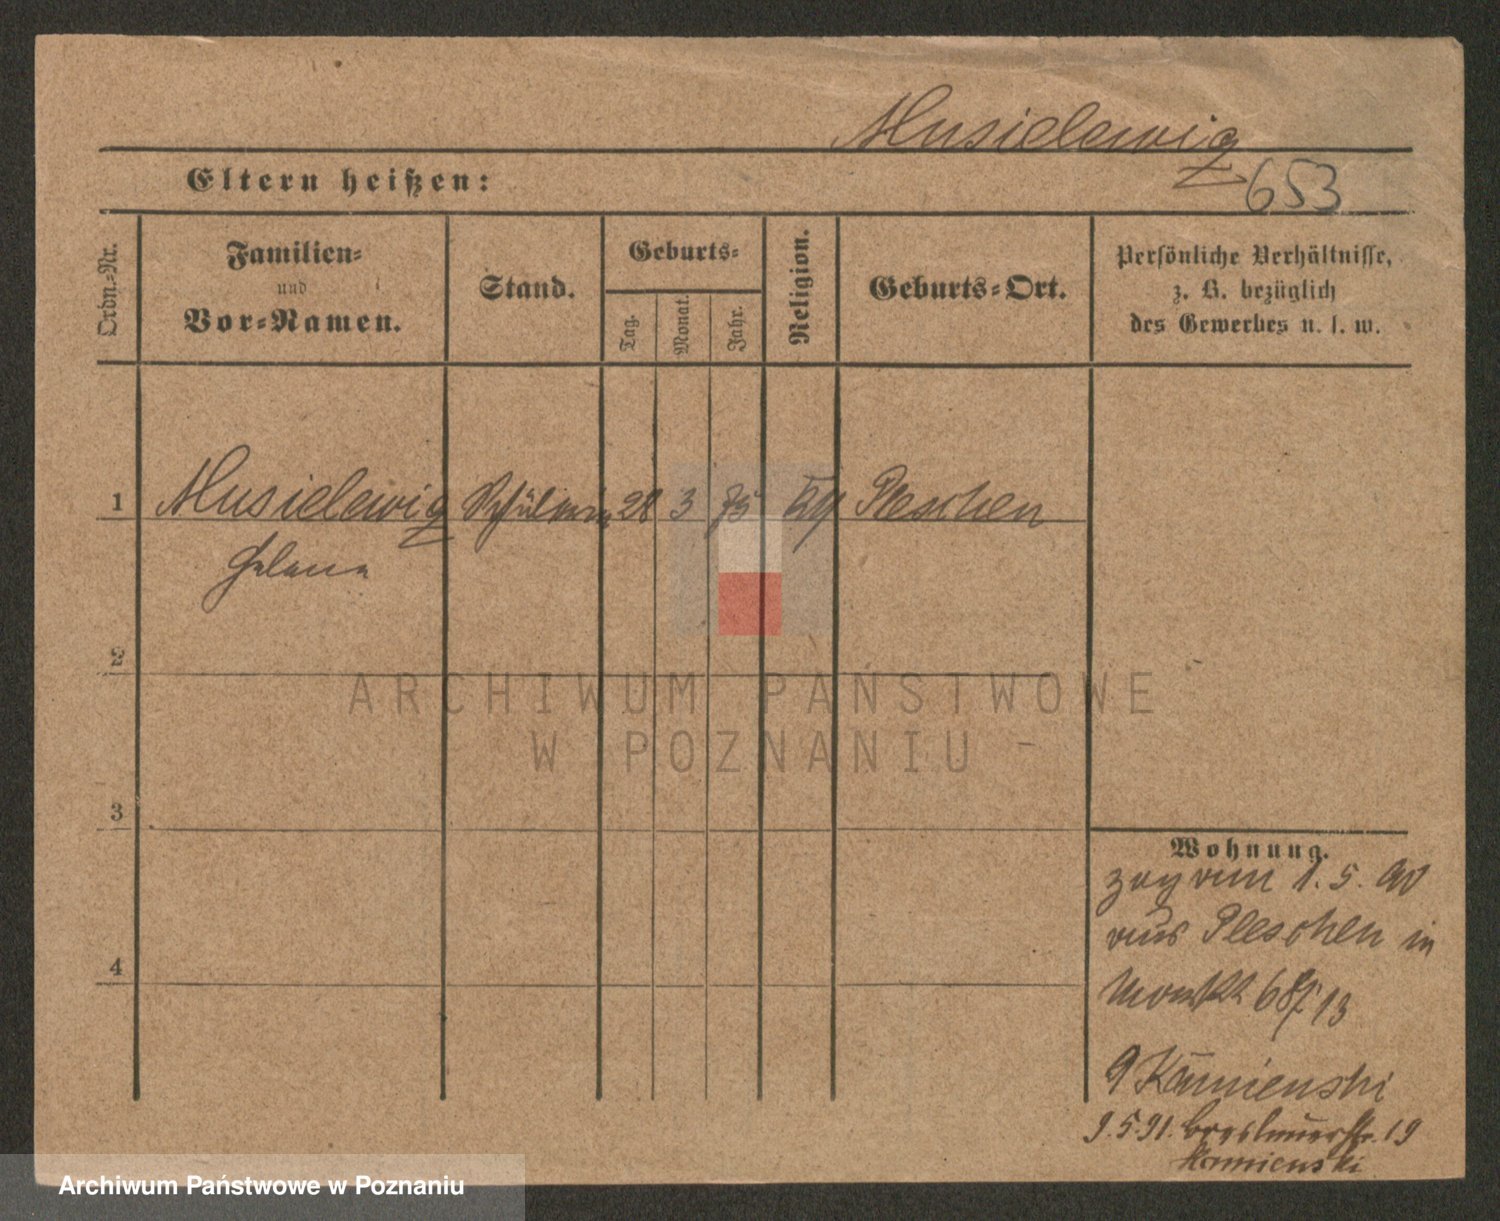 Musielewicz
653
Eltern heißen:
Ordn.-Nr.
Familien-
und
Vor-Namen.
Stand.
Geburts-
Tag.
Monat.
Jahr.
Religion.
Geburts-Ort.
Persönliche Verhältnisse,
z. B. bezüglich
des Gewerbes u. s. w.
1 Musielewicz Schülerin 28 3 75 Pleschen
Helena
2
ARCHIWUM PAŃSTWOWE
W POZNANIU
3
Wohnung.
zog am 1. 5. 90
aus Pleschen in
4
Markt 68/ 13
Kamienski
9.5.91. Breslauerstr. 19
Kamienski
Archiwum Państwowe w Poznaniu